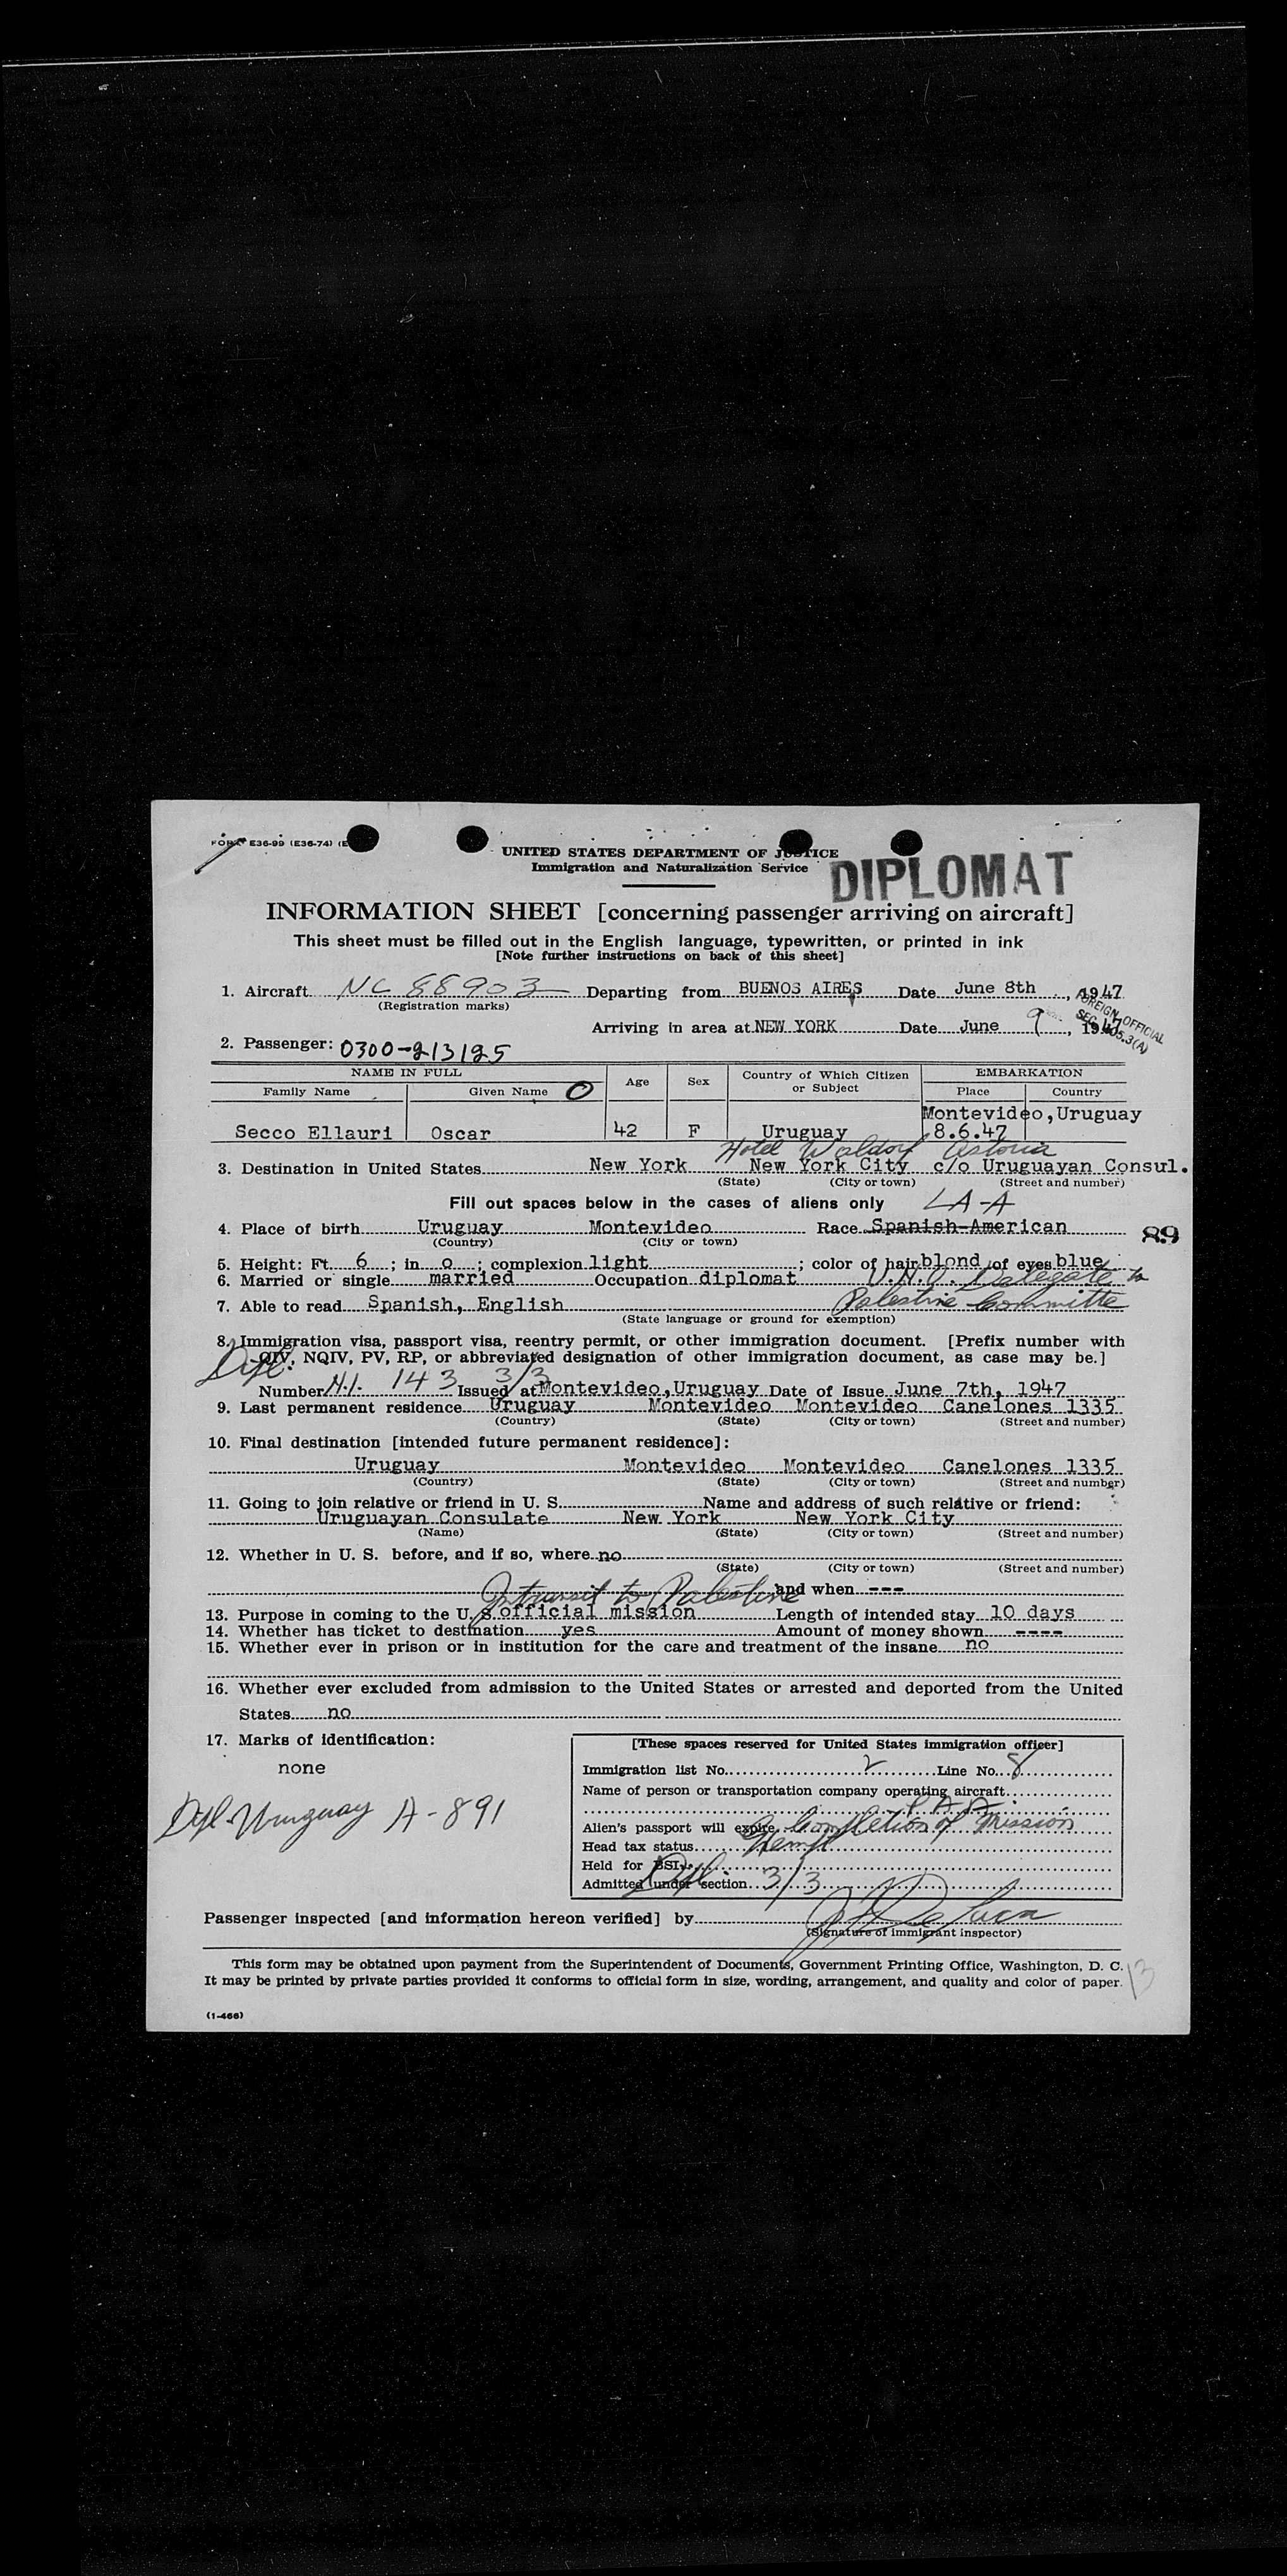 FORM E36-99 (E36-74)
UNITED STATES DEPARTMENT OF JUSTICE
Immigration and Naturalization Service
DIPLOMAT
INFORMATION SHEET [concerning passenger arriving on aircraft]
This sheet must be filled out in the English language, typewritten, or printed in ink
[Note further instructions on back of this sheet]
1. Aircraft NC 88903 Departing from BUENOS AIRES Date June 8th, 1947
(Registration marks)
FOREIGN OFFICIAL
Arriving in area at NEW YORK Date June 9, 1947
2. Passenger: 0300-213125
NAME IN FULL Age Sex Country of Which Citizen or Subject EMBARKATION
Family Name Given Name O Place Country
Montevideo, Uruguay
Secco Ellauri Oscar 42 F Uruguay 8.6.47
Hotel Waldorf Astoria
3. Destination in United States New York New York City c/o Uruguayan Consul.
(State) (City or town) (Street and number)
Fill out spaces below in the cases of aliens only LA-A
4. Place of birth Uruguay Montevideo Race Spanish-American
89
(Country) (City or town)
5. Height: Ft. 6; in 0; complexion light; color of hair blond of eyes blue
6. Married or single married Occupation diplomat U.N.O. Delegate to
7. Able to read Spanish, English Palestine Committe
(State language or ground for exemption)
8. Immigration visa, passport visa, reentry permit, or other immigration document. [Prefix number with
QIV, NQIV, PV, RP, or abbreviated designation of other immigration document, as case may be.]
Dipl.
Number 143 3/3 Issued at Montevideo, Uruguay Date of Issue June 7th, 1947
9. Last permanent residence Uruguay Montevideo Montevideo Canelones 1335
(Country) (State) (City or town) (Street and number)
10. Final destination [intended future permanent residence]:
Uruguay Montevideo Montevideo Canelones 1335
(Country) (State) (City or town) (Street and number)
11. Going to join relative or friend in U. S. Name and address of such relative or friend:
Uruguayan Consulate New York New York City
(Name) (State) (City or town) (Street and number)
12. Whether in U. S. before, and if so, where no
(State) (City or town) (Street and number)
Intransit to Palestine and when ---
13. Purpose in coming to the U. S. official mission Length of intended stay 10 days
14. Whether has ticket to destination yes Amount of money shown ----
15. Whether ever in prison or in institution for the care and treatment of the insane no
16. Whether ever excluded from admission to the United States or arrested and deported from the United
States no
17. Marks of identification:
none
Dipl. Uruguay A-891
[These spaces reserved for United States immigration officer]
Immigration list No. 2 Line No. 8
Name of person or transportation company operating aircraft
P.A.A.
Alien's passport will expire Completion of Mission
Head tax status Exempt
Held for BSI
Admitted under section Dipl. 3/3
Passenger inspected [and information hereon verified] by
(Signature of immigrant inspector)
This form may be obtained upon payment from the Superintendent of Documents, Government Printing Office, Washington, D. C.
It may be printed by private parties provided it conforms to official form in size, wording, arrangement, and quality and color of paper.
13
(1-466)